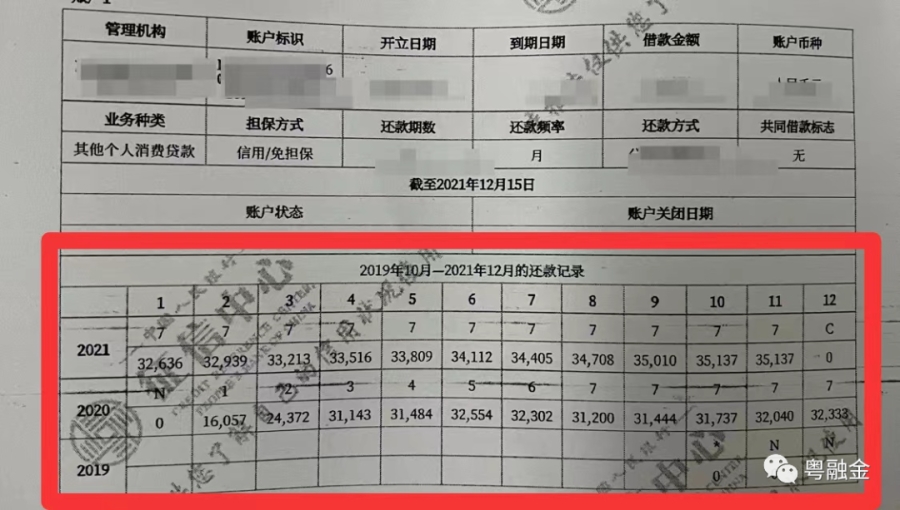 管理机构 账户标识 开立日期 到期日期 借款金额 账户币种
6
业务种类 担保方式 还款期数 还款频率 还款方式 共同借款标志
其他个人消费贷款 信用/免担保 月 无
截至2021年12月15日
账户状态 账户关闭日期
2019年10月—2021年12月的还款记录
1 2 3 4 5 6 7 8 9 10 11 12
2021 7 7 7 7 7 7 7 7 7 7 7 C
32,636 32,939 33,213 33,516 33,809 34,112 34,405 34,708 35,010 35,137 35,137 0
2020 N 1 2 3 4 5 6 7 7 7 7 7
0 16,057 24,372 31,143 31,484 32,554 32,302 31,200 31,444 31,737 32,040 32,333
2019 * N N
0
中国人民银行
征信中心
CREDIT REFERENCE CENTER
PEOPLE'S BANK OF CHINA
供您了解自己的信用状况使用
粤融金